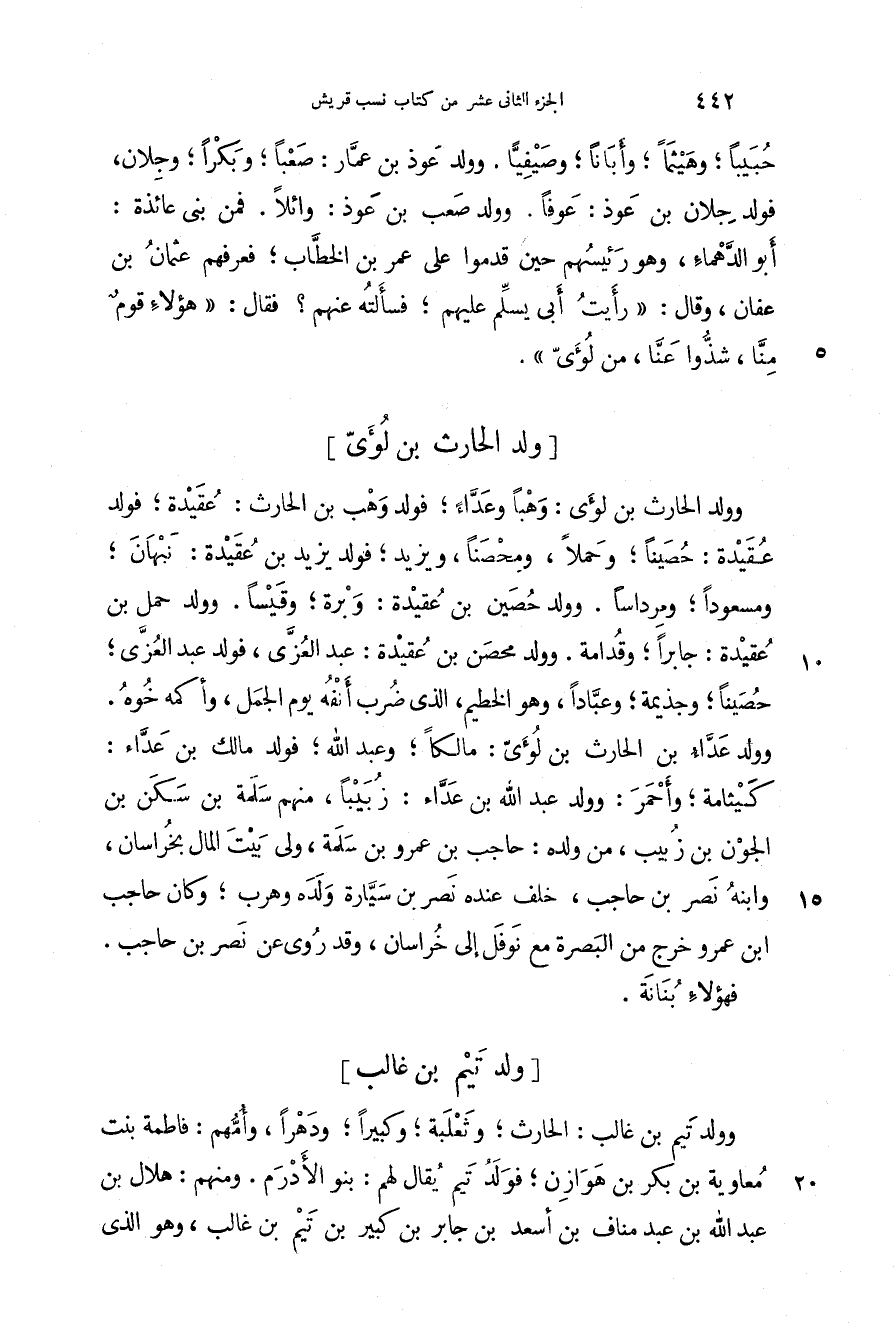 ٤٤٢ الجزء الثانى عشر من كتاب نسب قريش
حُبَيباً ؛ وهَيْثَماً ؛ وأَبَاناً ؛ وصَيْفِيًّا . وولد عَوذ بن عمَّار : صَعْباً ؛ وبَكْراً ؛ وجلان،
فولد جِلان بن عَوذ : عَوفاً . وولد صَعب بن عَوذ : وائلاً . فمن بنى عائذة :
أَبو الدَّهْماءِ ، وهو رَئيسُهم حينَ قدموا على عمر بن الخطَّاب ؛ فعرفهم عثمانُ بن
عفان ، وقال : « رأَيتُ أَبى يسلِّم عليهم ؛ فسأَلتُه عنهم ؟ فقال : « هؤلاءِ قومٌ
مِنَّا ، شذُّوا عَنَّا ، من لُؤَىّ » . ٥
[ ولد الحارث بن لُؤَىّ ]
وولد الحارث بن لوؤَى : وَهْباً وعَدَّاءً ؛ فولد وَهْب بن الحارث : عُقَيْدة ؛ فولد
عُقَيْدة : حُصَيناً ؛ وحَملاً ، ومِحْصَناً ، ويزيد ؛ فولد يزيد بن عُقَيْدة : نَبْهَانَ ؛
ومسعوداً ؛ ومِرداساً . وولد حُصَين بن عُقيْدة : وَبْرة ؛ وقَيْساً . وولد حمل بن
عُقيْدة : جابراً ؛ وقُدامة . وولد محصَن بن عُقيْدة : عبد العُزَّى ، فولد عبد العُزَّى ؛ ١٠
حُصَيناً ؛ وجذيمة ؛ وعبَّاداً ، وهو الخطيم، الذى ضُرب أَنْفُه يوم الجمَل ، وأكمه خُوهُ.
وولد عَدَّاءِ بن الحارث بن لُؤَىّ : مالكاً ؛ وعبد الله ؛ فولد مالك بن عَدَّاء :
كَيْثامة ؛ وأَحْمَرَ : وولد عبد الله بن عَدَّاء : زُبَيْبًا ، منهم سَلَمة بن سَكَن بن
الجوْن بن زُبيب ، من ولده : حاجب بن عمرو بن سَلَمة ، ولى بَيْتَ المال بخُراسان ،
وابنهُ نَصر بن حاجب ، خلف عنده نَصر بن سَيَّارة وَلَدَه وهرب ؛ وكان حاجب ١٥
ابن عمرو خرج من البَصرة مع نَوفَل إلى خُراسان ، وقد رُوى عن نَصر بن حاجب .
فهؤلاءِ بُنَانَة .
[ ولد تَيْم بن غالب ]
وولد تَيم بن غالب : الحارث ؛ وثَعْلَبة ؛ وكبيراً ؛ ودَهْراً ، وأُمُّهم : فاطمة بنت
مُعاوية بن بكر بن هَوَازِن ؛ فوَلَدُ تَيم يُقال لهم : بنو الأَدْرَم . ومنهم : هلال بن ٢٠
عبد الله بن عبد مناف بن أسعد بن جابر بن كبير بن تَيْم بن غالب ، وهو الذى